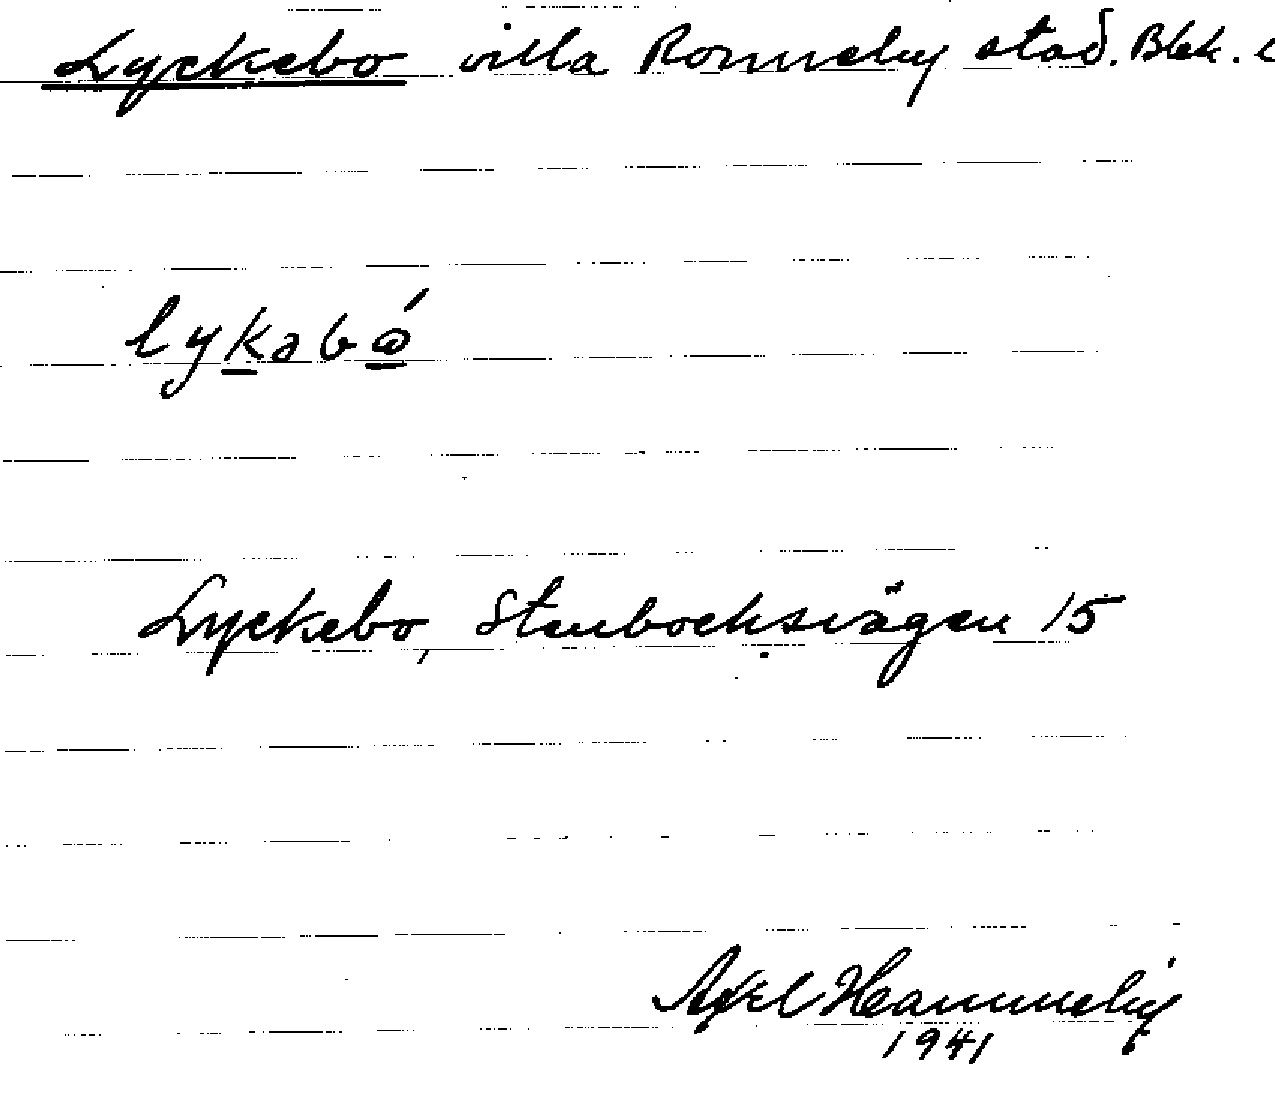 Lyckebo villa Ronneby stad. Blek. l
lykabó
Lyckebo, Stenbocksvägen 15
Axel Hammeby
1941